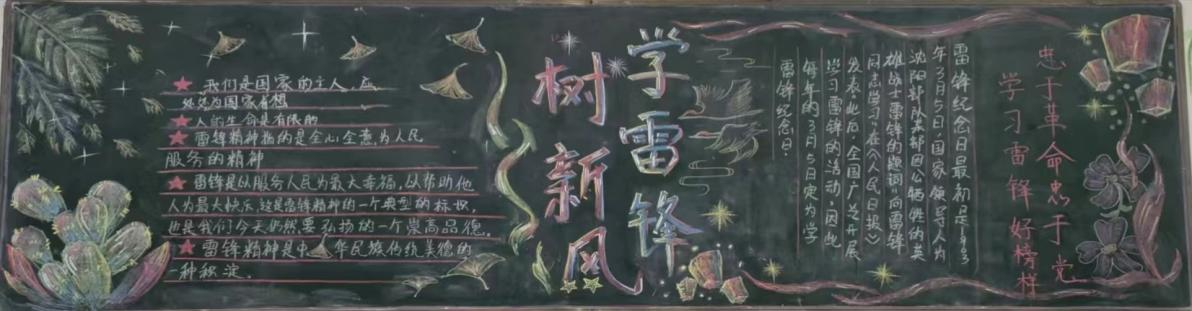 我们是国家的主人,应
处处为国家着想
人的生命是有限的
雷锋精神指的是全心全意为人民
服务的精神
雷锋是以服务人民为最大幸福,以帮助他
人为最大快乐,这是雷锋精神的一个典型的标识,
也是我们今天仍然要弘扬的一个崇高品德。
雷锋精神是中华民族传统美德的
一种积淀。
学雷锋
树新风
雷锋纪念日最初是1963
年3月5日,国家领导人为
沈阳部队某部因公牺牲的英
雄战士雷锋的题词"向雷锋
同志学习"在《人民日报》
发表,此后,全国广泛开展
学习雷锋的活动,因此
每年的3月5日定为学
雷锋纪念日。
忠于革命忠于党
学习雷锋好榜样